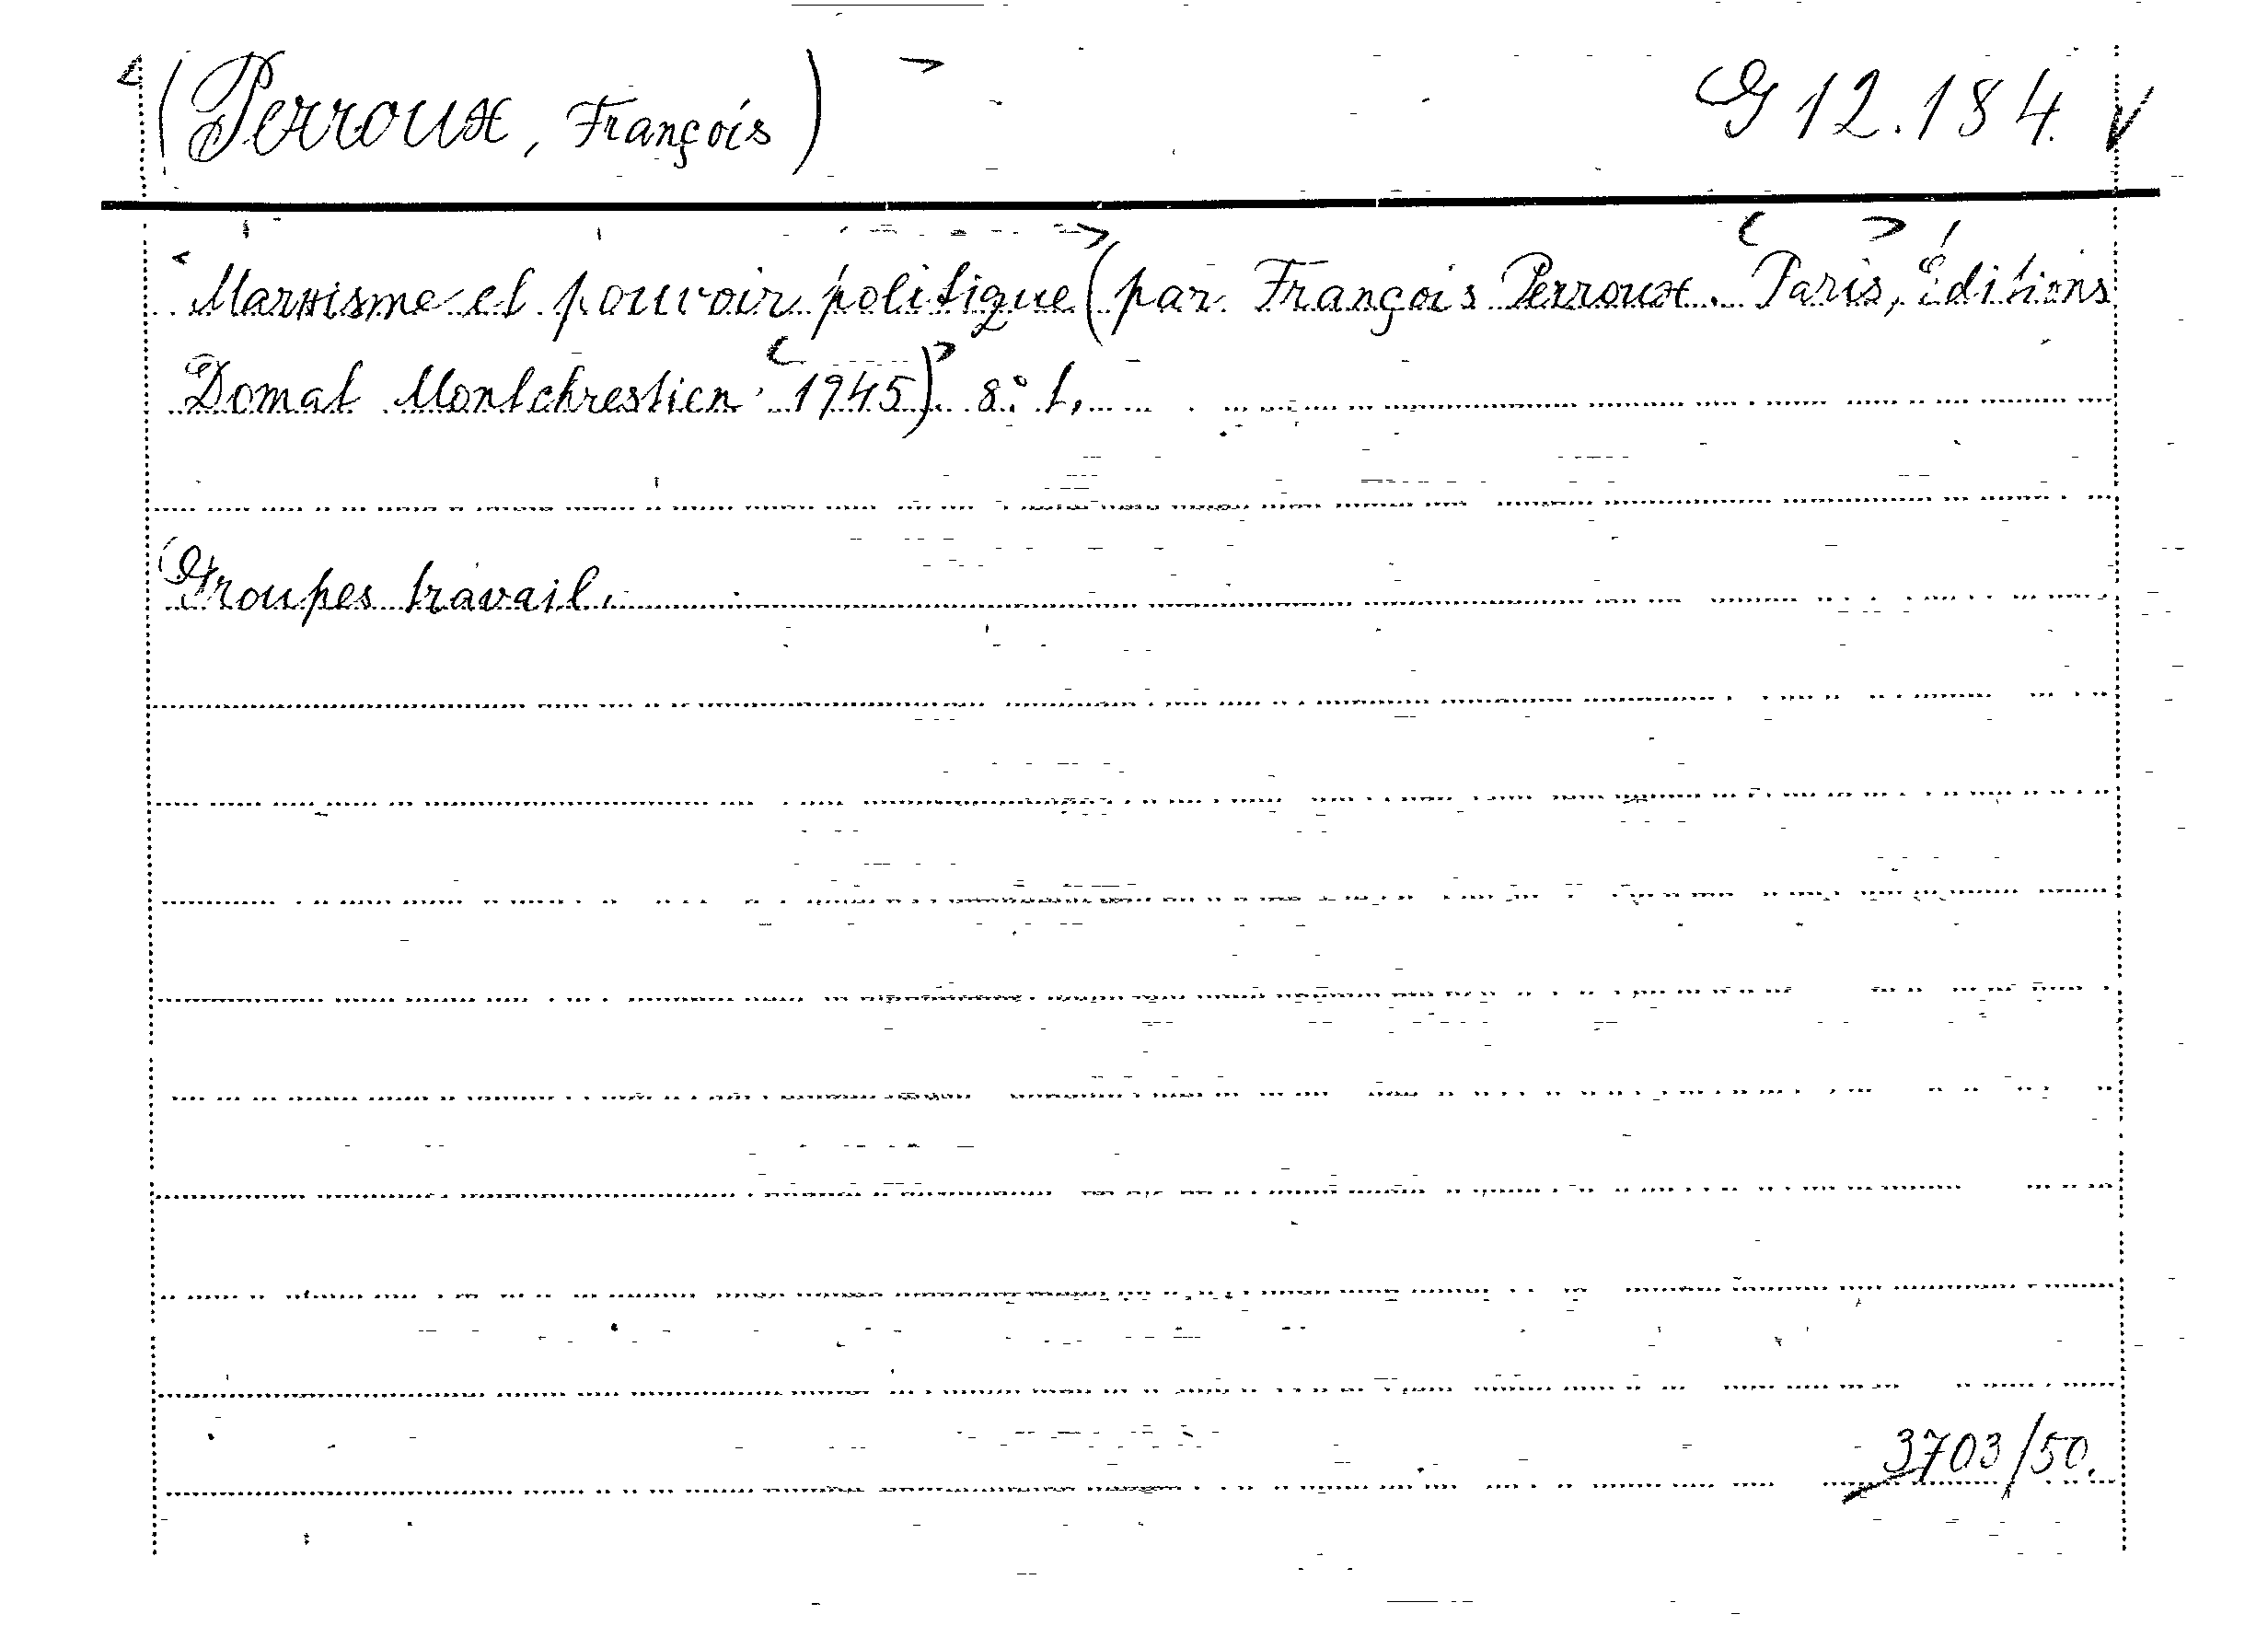 (Perroux, François) G 12.184.
Marxisme et pouvoir politique (par François Perroux. Paris, Éditions
Domat Montchrestien 1945). 8° t.
Groupes travail.
3703/50.